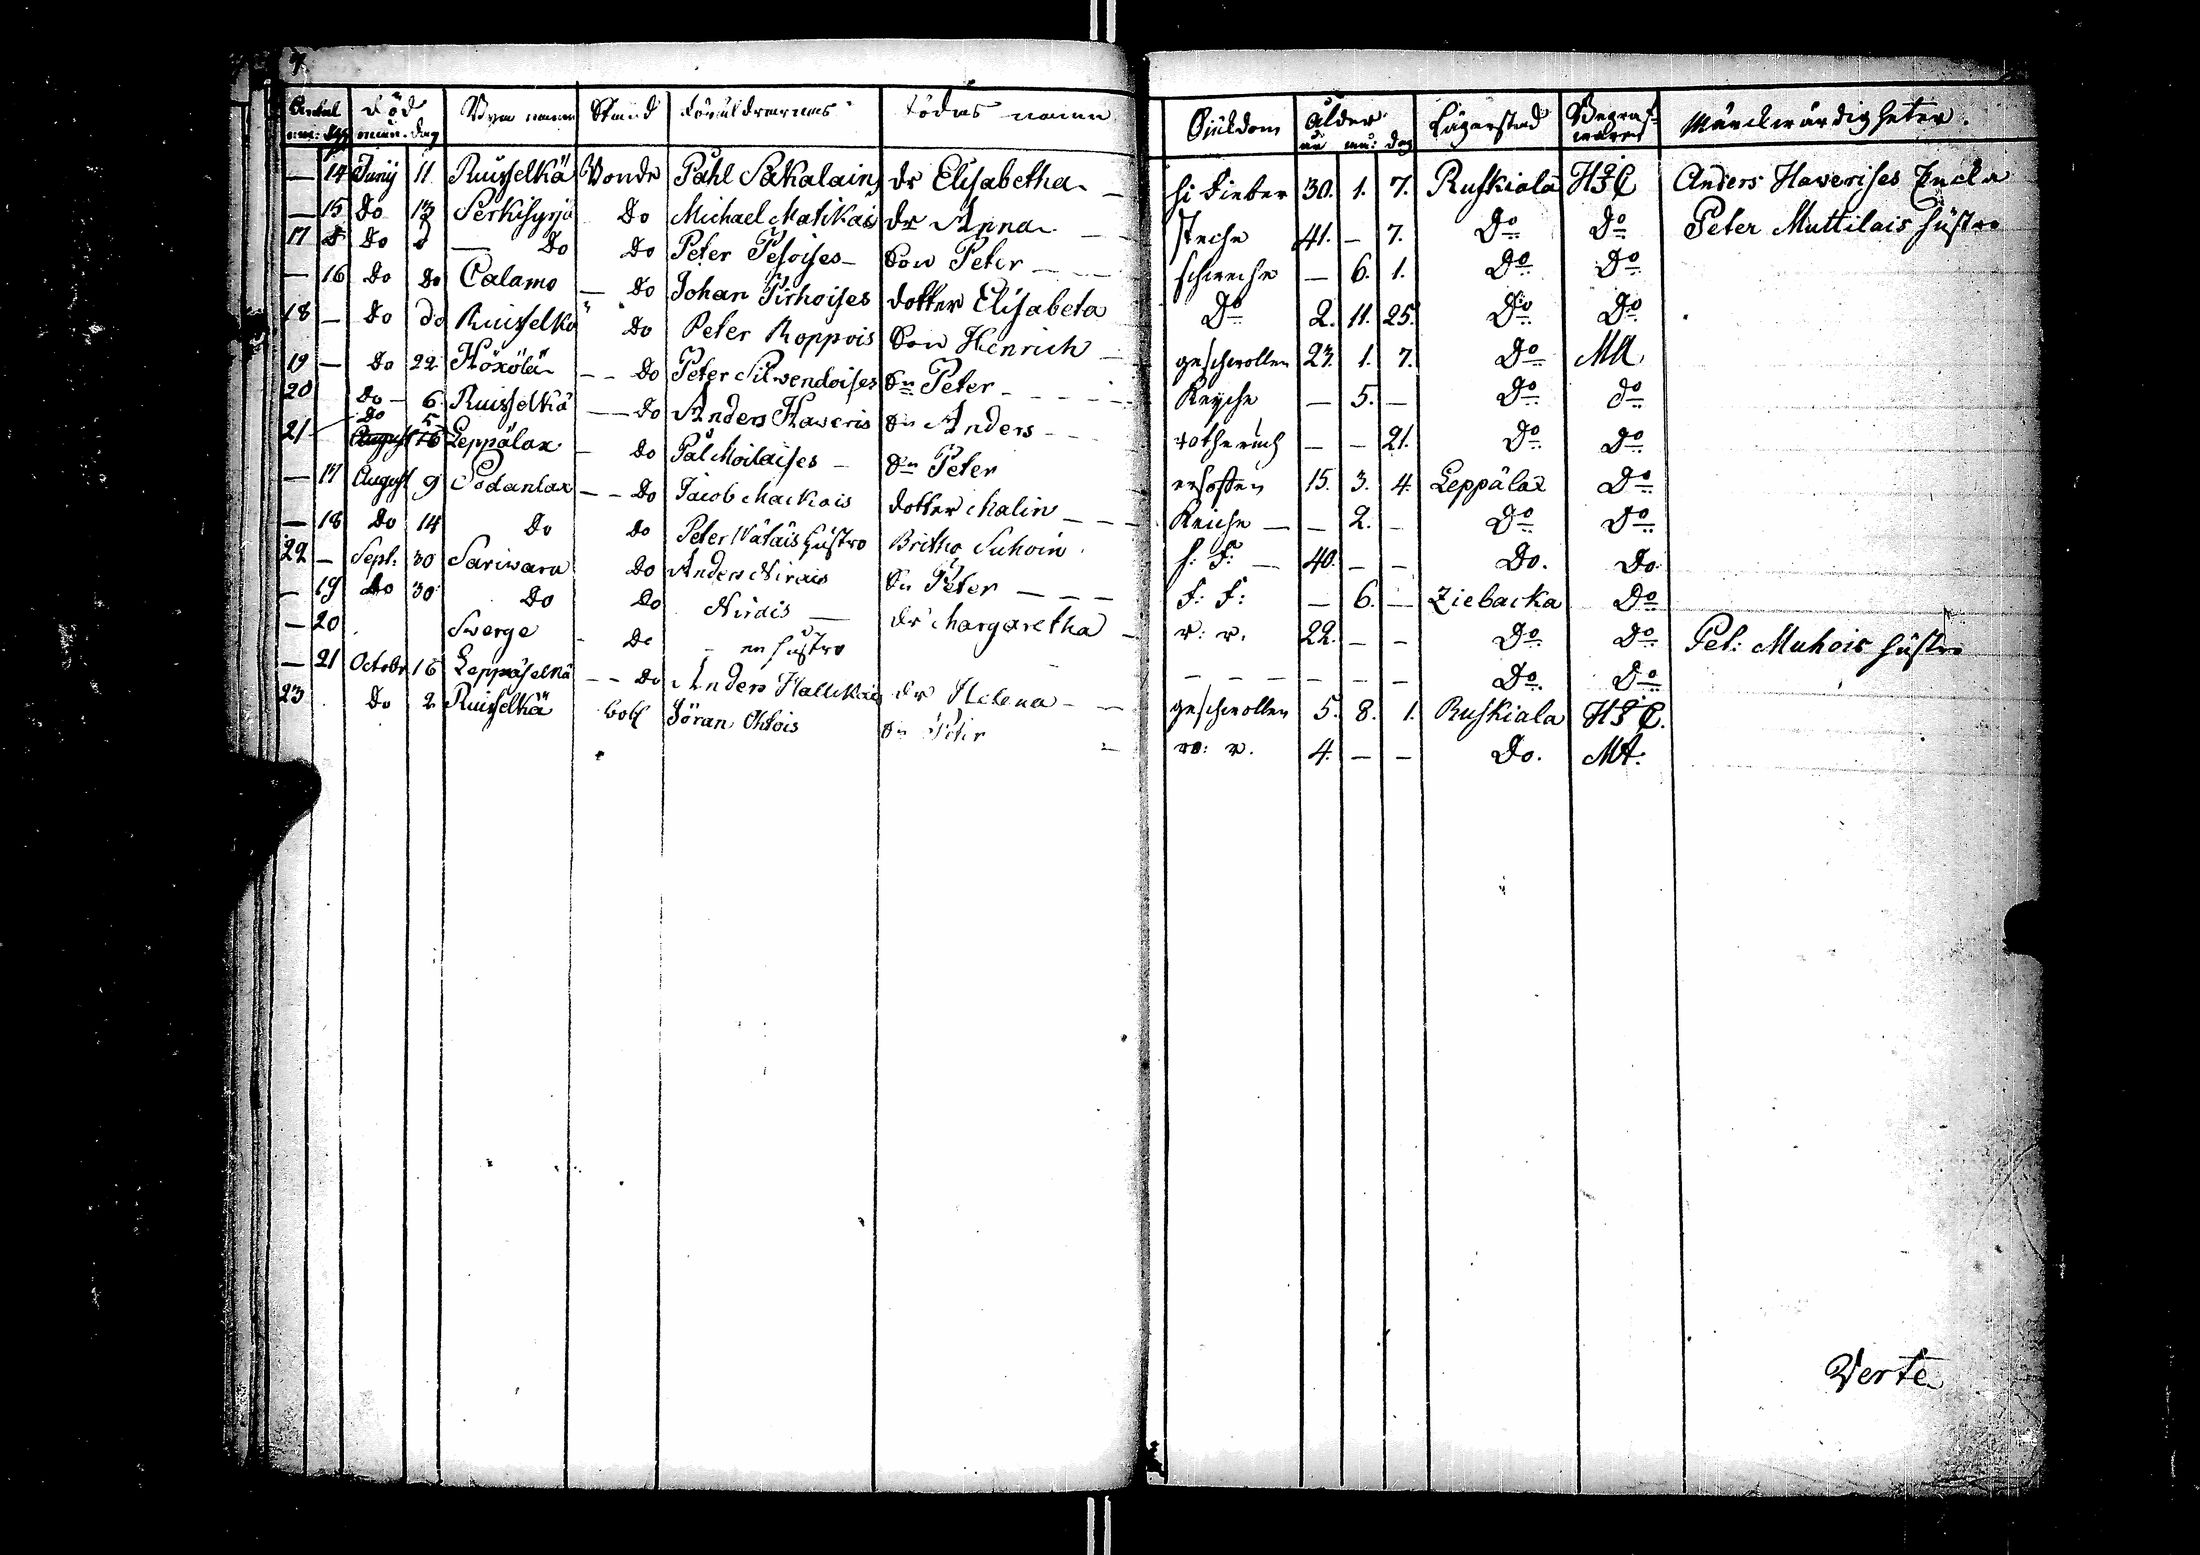 7.
Antal Död Byn namn Stånd Föräldrarnas Dödas namn Sjukdom ålder Lägerstad Begraf- Märckwärdigheter.
mån. dag år må: dag
— 14 Junij 11 Ruisselkä Bonde Påhl Sakalain dr Elisabetha — hi Fieber 30. 1. 7. Ruskiala HSC Anders Haverises Encka
— 15 Do 13 Serkisyrjä Do Michael Matikais dr Anna — — steche 41. — 7. Do Do Peter Muttilais hustro
17 Do — Do Do Peter Pesoises — Son Peter — — — 6. 1. Do Do
— 16 Do Do Calamo — Do Johan Pirhoises dotter Elisabeta Do 2. 11. 25. Do Do
18 — Do do Ruisselkä Do Peter Roppois Son Henrich — geschwollen 23. 1. 7. Do MA
19 — Do 22 Höxölä — — Do Peter Silwendoises Sn Peter — — — Keyche — 5. — Do do
20 Do — 6 Ruisselkä — — Do Anders Haweris Sn Anders — — — — 21. Do Do
21 Do 5 August 16 Leppälax — Do Pål Moilaises — Sn Peter ersoffen 15. 3. 4. Leppälax Do
— 17 August 9 Sodanlax — — Do Jacob Mackois dotter Malin — — — Keiche — — 2. — Do Do
— 18 Do 14 Do Do Peter Wätäis hustro Britha Suhoin h. F. — 40. — — Do. Do.
22 — Sept. 30 Sariwara Do Anders Nirais Sn Peter — — — F: F: — 6. — Ziebacka Do
— 19 Do 30 Do Do Nirais — dr Margaretha — r: r. 22. — — Do Do Pet: Muhois hustro
— 20 Swerge — Do — en hustro — — — — — — Do. Do
— 21 Octobr 16 Leppäselkä — — Do Anders Hallikais dr Helena — — geschwollen 5. 8. 1. Ruskiala HSC.
23 Do 2 Ruisselkä Göran Ohtois Sn Peter — ro: r. 4. — — Do. MA.
Verte